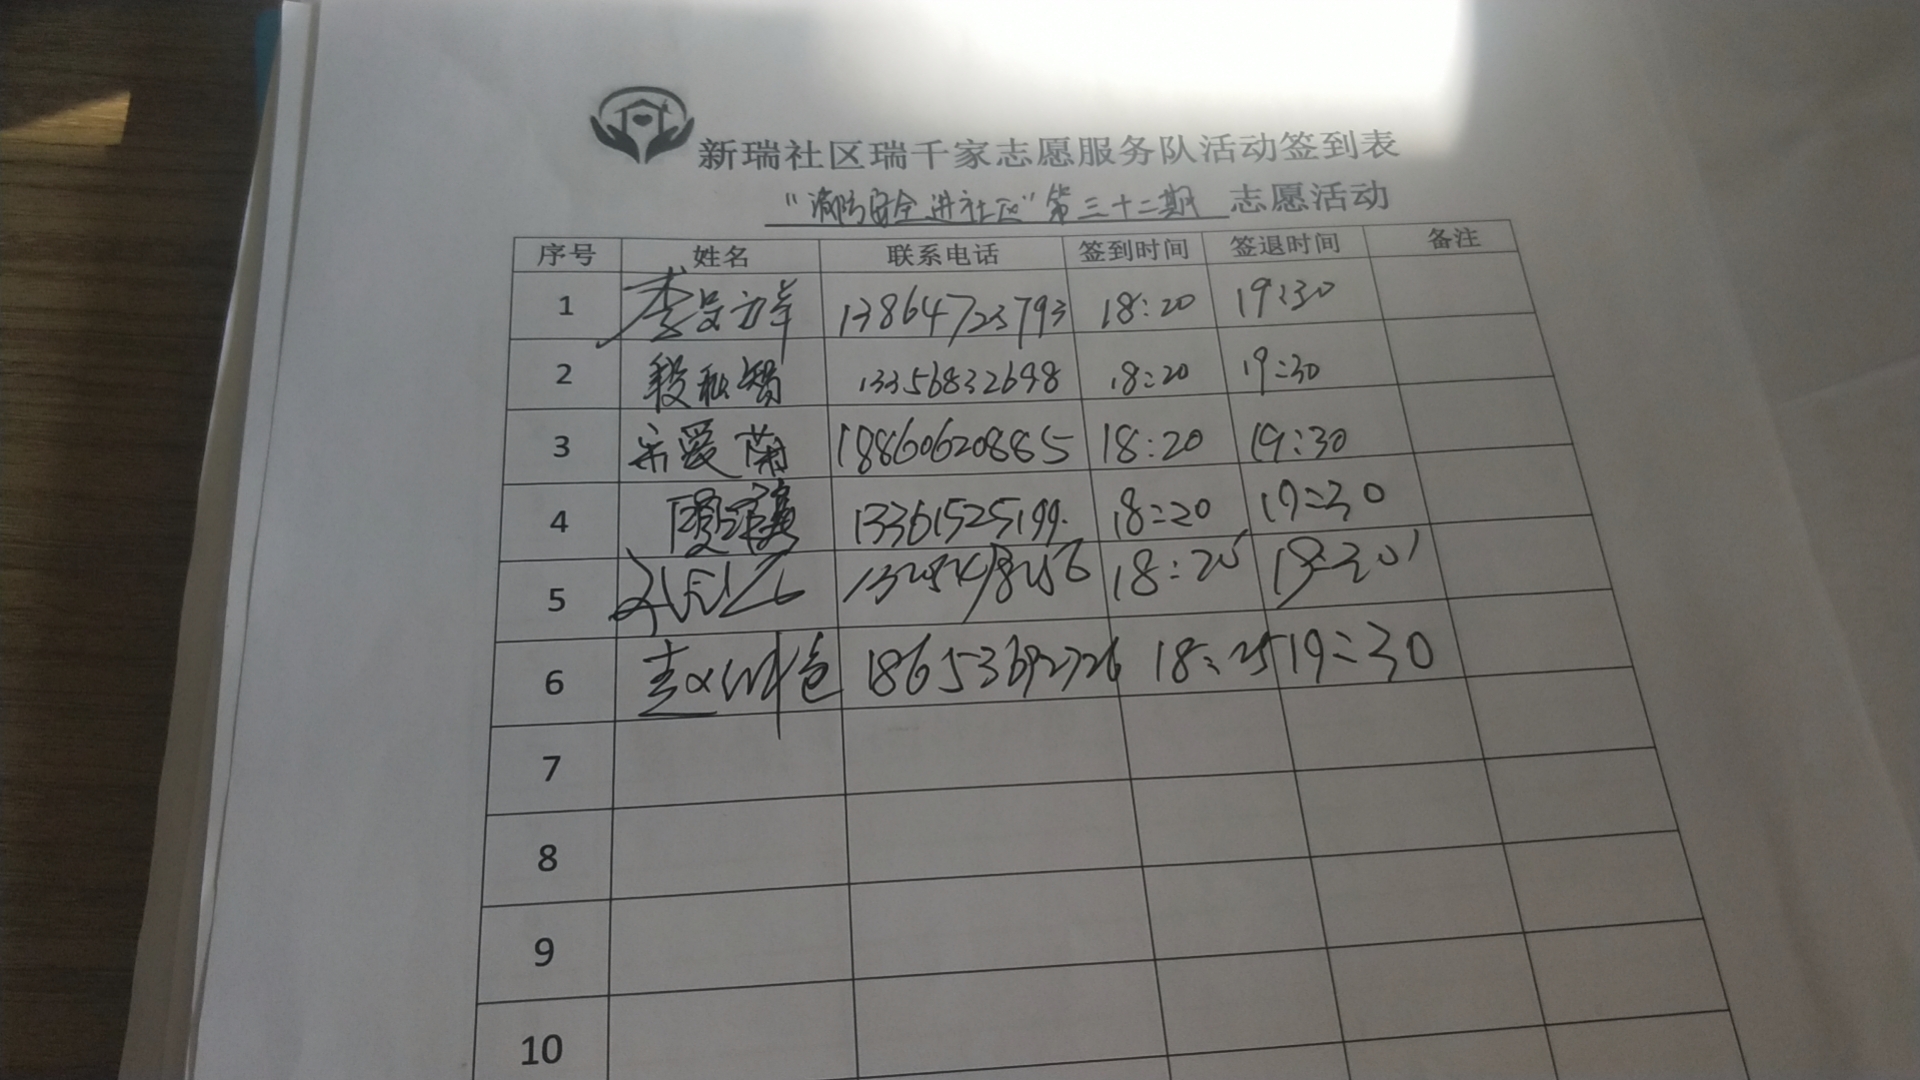 新瑞社区瑞千家志愿服务队活动签到表
"消防安全进社区"第三十二期 志愿活动
序号 姓名 联系电话 签到时间 签退时间 备注
1 13864723793 18:20 19:30
2 13356832698 18:20 19:30
3 宋爱菊 18860620885 18:20 19:30
4 13361525199 18:20 19:30
5 18:25 19:30
6 18653692726 18:25 19:30
7
8
9
10